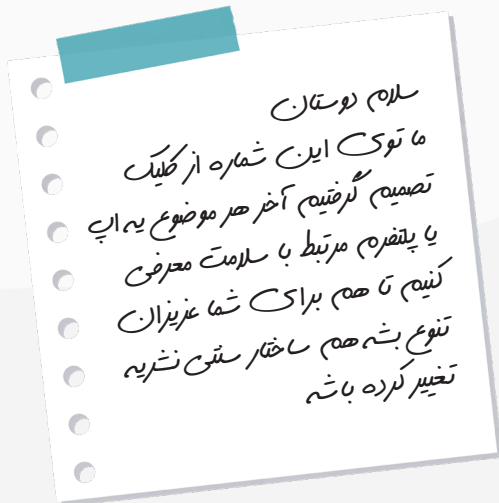 سلام دوستان
ما توی این شماره از کلیک
تصمیم گرفتیم آخر هر موضوع یه اپ
یا پلتفرم مرتبط با سلامت معرفی
کنیم تا هم برای شما عزیزان
تنوع بشه هم ساختار سنتی نشریه
تغییر کرده باشه